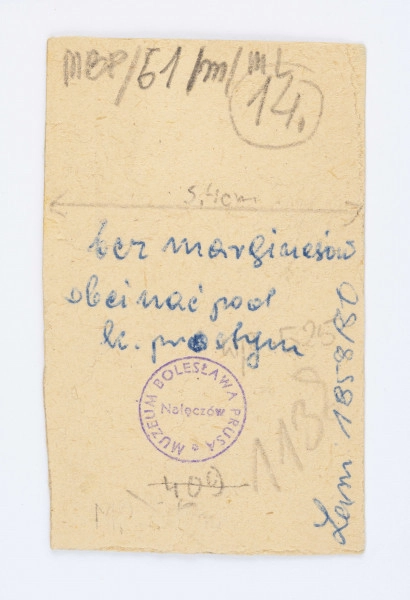 MBP/51/m/ML
14.
5,4cm
bez marginesów
obcinać pod
k. prostym
525
MUZEUM BOLESŁAWA PRUSA
Nałęczów
113
409
Lam 1858/80